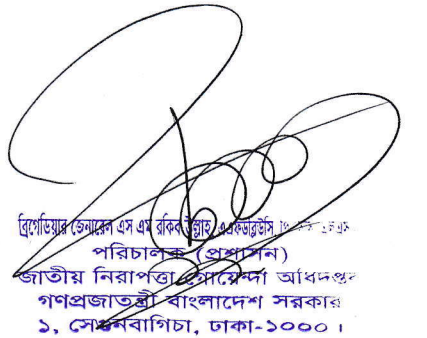 ব্রিগেডিয়ার জেনারেল এস এম রকিব উল্লাহ, এএফডব্লিউসি,
পরিচালক (প্রশাসন)
জাতীয় নিরাপত্তা গোয়েন্দা অধিদপ্তর
গণপ্রজাতন্ত্রী বাংলাদেশ সরকার
১, সেগুনবাগিচা, ঢাকা-১০০০।